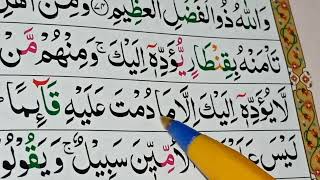 وَاللّٰهُ ذُو الْفَضْلِ الْعَظِيْمِ ۝۷۴ وَمِنْ اَهْلِ
تَاْمَنْهُ بِقِنْطَارٍ يُّؤَدِّهٖٓ اِلَيْكَ ۚ وَمِنْهُمْ مَّنْ
لَّا يُؤَدِّهٖٓ اِلَيْكَ اِلَّا مَا دُمْتَ عَلَيْهِ قَآئِمًا ؕ
لَيْسَ سَبِيْلٌ ۚ وَيَقُوْلُوْ